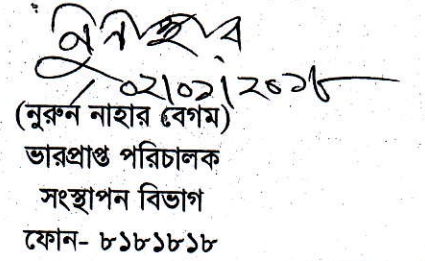 নুরুন নাহার
০২|০১|২০১৮
(নুরুন নাহার বেগম)
ভারপ্রাপ্ত পরিচালক
সংস্থাপন বিভাগ
ফোন- ৮১৮১৮১৮